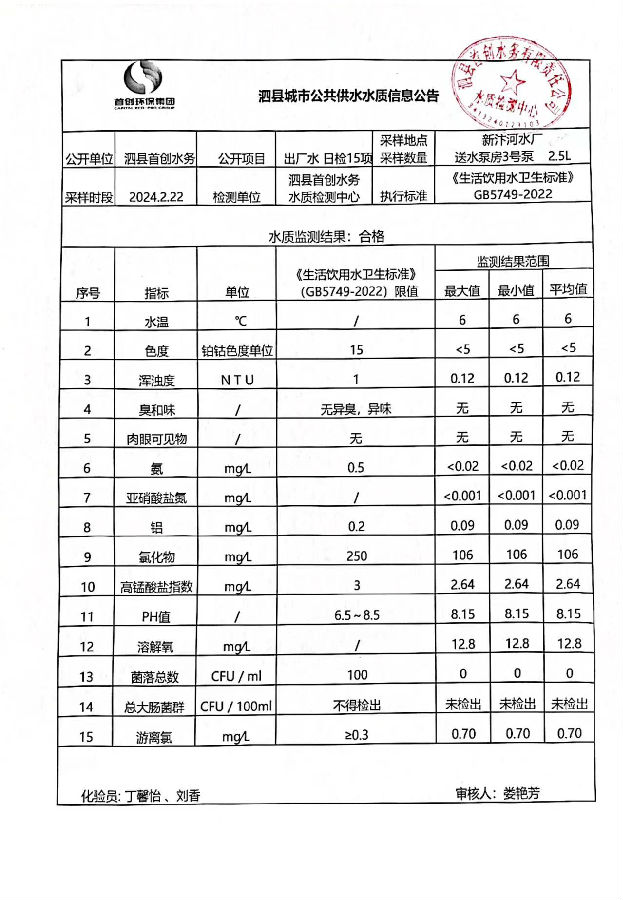 首创环保集团
CAPITAL ECO-PRO GROUP
泗县城市公共供水水质信息公告
泗县首创水务有限责任公司
水质检测中心
公开单位 泗县首创水务 公开项目 出厂水 日检15项 采样地点 采样数量 新汴河水厂 送水泵房3号泵 2.5L
采样时段 2024.2.22 检测单位 泗县首创水务 水质检测中心 执行标准 《生活饮用水卫生标准》 GB5749-2022
水质监测结果：合格
序号 指标 单位 《生活饮用水卫生标准》（GB5749-2022）限值 监测结果范围
最大值 最小值 平均值
1 水温 ℃ / 6 6 6
2 色度 铂钴色度单位 15 <5 <5 <5
3 浑浊度 NTU 1 0.12 0.12 0.12
4 臭和味 / 无异臭，异味 无 无 无
5 肉眼可见物 / 无 无 无 无
6 氨 mg/L 0.5 <0.02 <0.02 <0.02
7 亚硝酸盐氮 mg/L / <0.001 <0.001 <0.001
8 铝 mg/L 0.2 0.09 0.09 0.09
9 氯化物 mg/L 250 106 106 106
10 高锰酸盐指数 mg/L 3 2.64 2.64 2.64
11 PH值 / 6.5~8.5 8.15 8.15 8.15
12 溶解氧 mg/L / 12.8 12.8 12.8
13 菌落总数 CFU / ml 100 0 0 0
14 总大肠菌群 CFU / 100ml 不得检出 未检出 未检出 未检出
15 游离氯 mg/L ≥0.3 0.70 0.70 0.70
化验员: 丁馨怡 、刘香 审核人： 娄艳芳